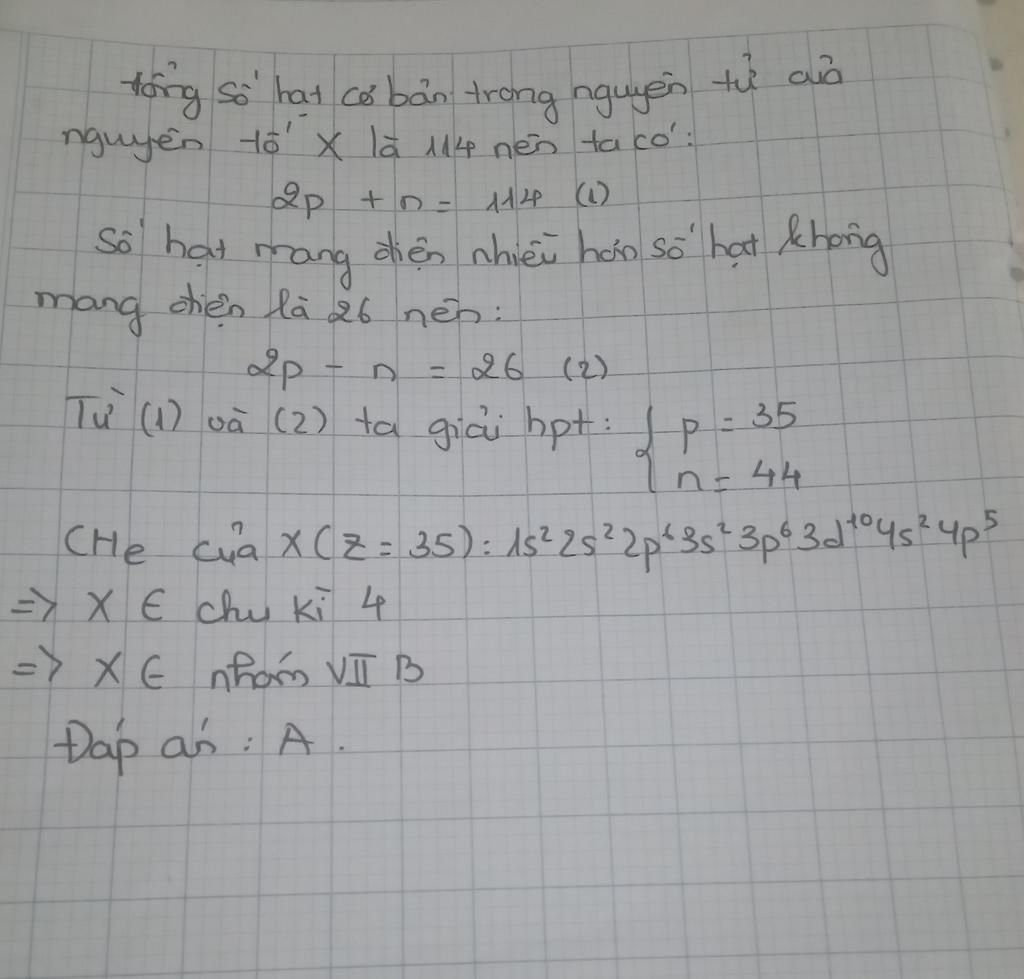 tổng số hạt cơ bản trong nguyên tử của
nguyên tố X là 114 nên ta có:
2p + n = 114 (1)
Số hạt mang điện nhiều hơn số hạt không
mang điện là 26 nên:
2p - n = 26 (2)
Từ (1) và (2) ta giải hpt: { p = 35
n = 44
CHe của X (Z = 35): 1s² 2s² 2p⁶ 3s² 3p⁶ 3d¹⁰ 4s² 4p⁵
=> X ∈ chu kì 4
=> X ∈ nhóm VII B
Đáp án : A.